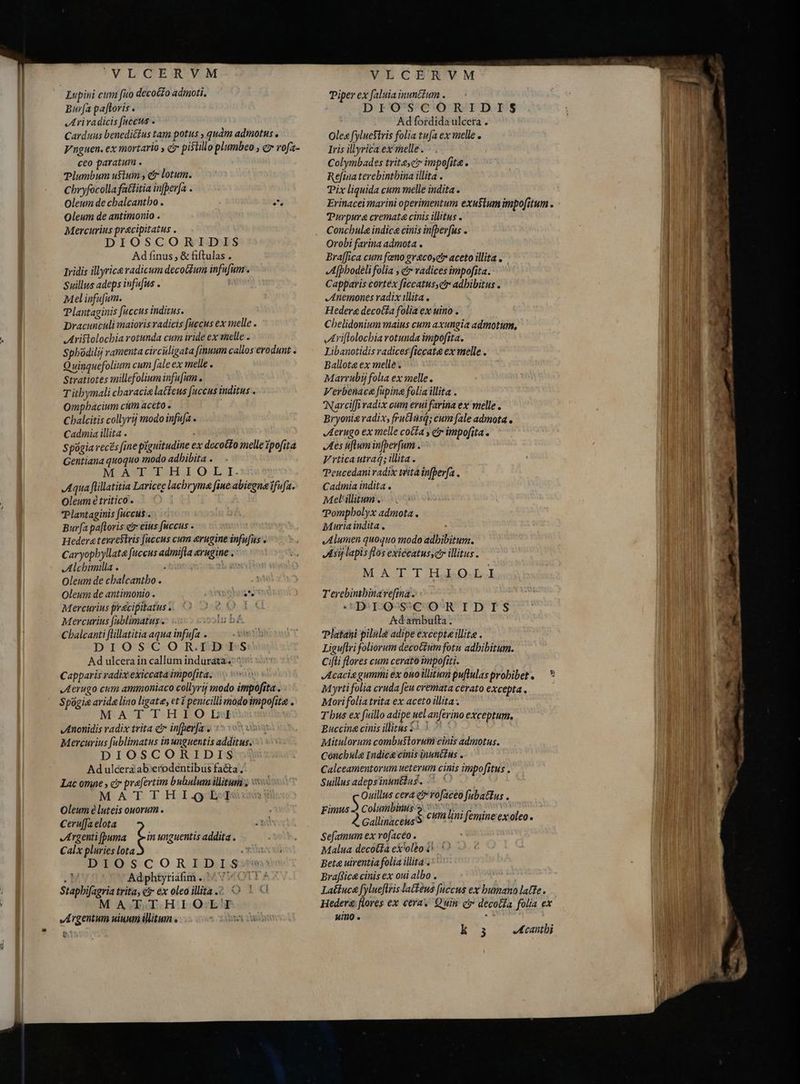 VLCERVM
Lupini cum suo decocto admoti.
Bursa pastoris.
Ari radicis succus.
Carduus benedictus tam potus, quàm admotus.
Vnguen. ex mortario, & pistillo plumbeo, & rosa-
ceo paratum.
Plumbum ustum, & lotum.
Chrysocolla factitia inspersa.
Oleum de chalcantho.
Oleum de antimonio.
Mercurius præcipitatus.
DIOSCORIDIS
Ad sinus, & fistulas.
Iridis illyricæ radicum decoctum infusum.
Suillus adeps infusus.
Mel infusum.
Plantaginis succus inditus.
Dracunculi maioris radicis succus ex melle.
Aristolochia rotunda cum iride ex melle.
Sphōdilij ramenta circūligata sinuum callos erodunt.
Quinquefolium cum sale ex melle.
Stratiotes millefolium infusum.
Tithymali characiæ lacteus succus inditus.
Omphacium cùm aceto.
Chalcitis collyrij modo infusa.
Cadmia illita.
Spōgia recēs sine piguitudine ex decocto melle īposita
Gentiana quoquo modo adhibita.
MATTHIOLI.
Aqua stillatitia Laricee lachrymæ siue abiegnæ ifusa.
Oleum è tritico.
Plantaginis succus.
Bursa pastoris & eius succus.
Hederæ terrestris succus cum ærugine infusus.
Caryophyllatæ succus admista ærugine.
Alchimilla.
Oleum de chalcantho.
Oleum de antimonio.
Mercurius præcipitatus.
Mercurius sublimatus.
Chalcanti stillatitia aqua infusa.
DIOSCORIDIS
Ad ulcera in callum indurata.
Capparis radix exiccata imposita.
Aerugo cum ammoniaco collyrij modo imposita.
Spōgiæ aridæ lino ligatæ, et ī penicilli modo impositæ.
MATTHIOLI
Anonidis radix trita & inspersa.
Mercurius sublimatus in unguentis additus.
DIOSCORIDIS
Ad ulcera ab erodentibus facta.
Lac omne, & præsertim bubulum illitum.
MATTHIOLI
Oleum è luteis ouorum.
Cerussa elota
Argenti spuma } in unguentis addita.
Calx pluries lota
DIOSCORIDIS
Ad phtyriasim.
Staphisagria trita, & ex oleo illita.
MATTHIOLI
Argentum uiuum illitum.
VLCERVM
Piper ex saluia inunctum.
DIOSCORIDIS
Ad sordida ulcera.
Oleæ syluestris folia tusa ex melle.
Iris illyrica ex melle.
Colymbades tritæ, & impositæ.
Resina terebinthina illita.
Pix liquida cum melle indita.
Erinacei marini operimentum exustum impositum.
Purpuræ crematæ cinis illitus.
Conchulæ indicæ cinis inspersus.
Orobi farina admota.
Brassica cum fœno græco, & aceto illita.
Asphodeli folia, & radices imposita.
Capparis cortex siccatus, & adhibitus.
Anemones radix illita.
Hederæ decocta folia ex uino.
Chelidonium maius cum axungia admotum,
Aristolochia rotunda imposita.
Libanotidis radices siccatæ ex melle.
Ballote ex melle.
Marrubij folia ex melle.
Verbenacæ supinæ folia illita.
Narcissi radix cum erui farina ex melle.
Bryoniæ radix, fructusq; cum sale admota.
Aerugo ex melle cocta, & imposita.
Aes ustum inspersum.
Vrtica utraq; illita.
Peucedani radix trita inspersa.
Cadmia indita.
Mel illitum.
Pompholyx admota.
Muria indita.
Alumen quoquo modo adhibitum.
Asij lapis flos exiccatus, & illitus.
MATTHIOLI
Terebinthina resina.
DIOSCORIDIS
Ad ambusta.
Platani pilulæ adipe exceptæ illitæ.
Ligustri foliorum decoctum fotu adhibitum.
Cisti flores cum cerato impositi.
Acaciæ gummi ex ouo illitum pustulas prohibet.
Myrti folia cruda seu cremata cerato excepta.
Mori folia trita ex aceto illita.
Thus ex suillo adipe uel anserino exceptum.
Buccinæ cinis illitus.
Mitulorum combustorum cinis admotus.
Conchulæ Indicæ cinis inunctus.
Calceamentorum ueterum cinis impositus.
Suillus adeps inunctus.
Ouillus cera & rosaceo subactus.
Fimus { Columbinus
Gallinaceus } cum lini semine ex oleo.
Sesamum ex rosaceo.
Malua decocta ex oleo.
Betæ uirentia folia illita.
Brassicæ cinis ex oui albo.
Lactucæ syluestris lacteus succus ex humano lacte.
Hederæ flores ex cera. Quin & decocta folia ex
uino.
k 3 Acanthi